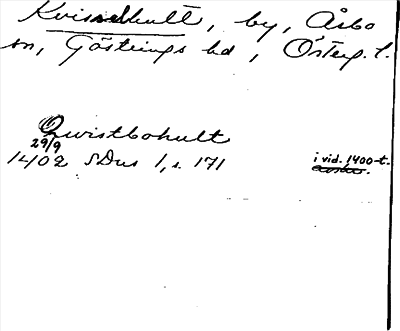 Kvisslehult, by, Åsbo
sn, Göstrings hd, Österg. l.
Qwistbohult
29/9
1402 SDns 1, s. 171
i vid. 1400-t.